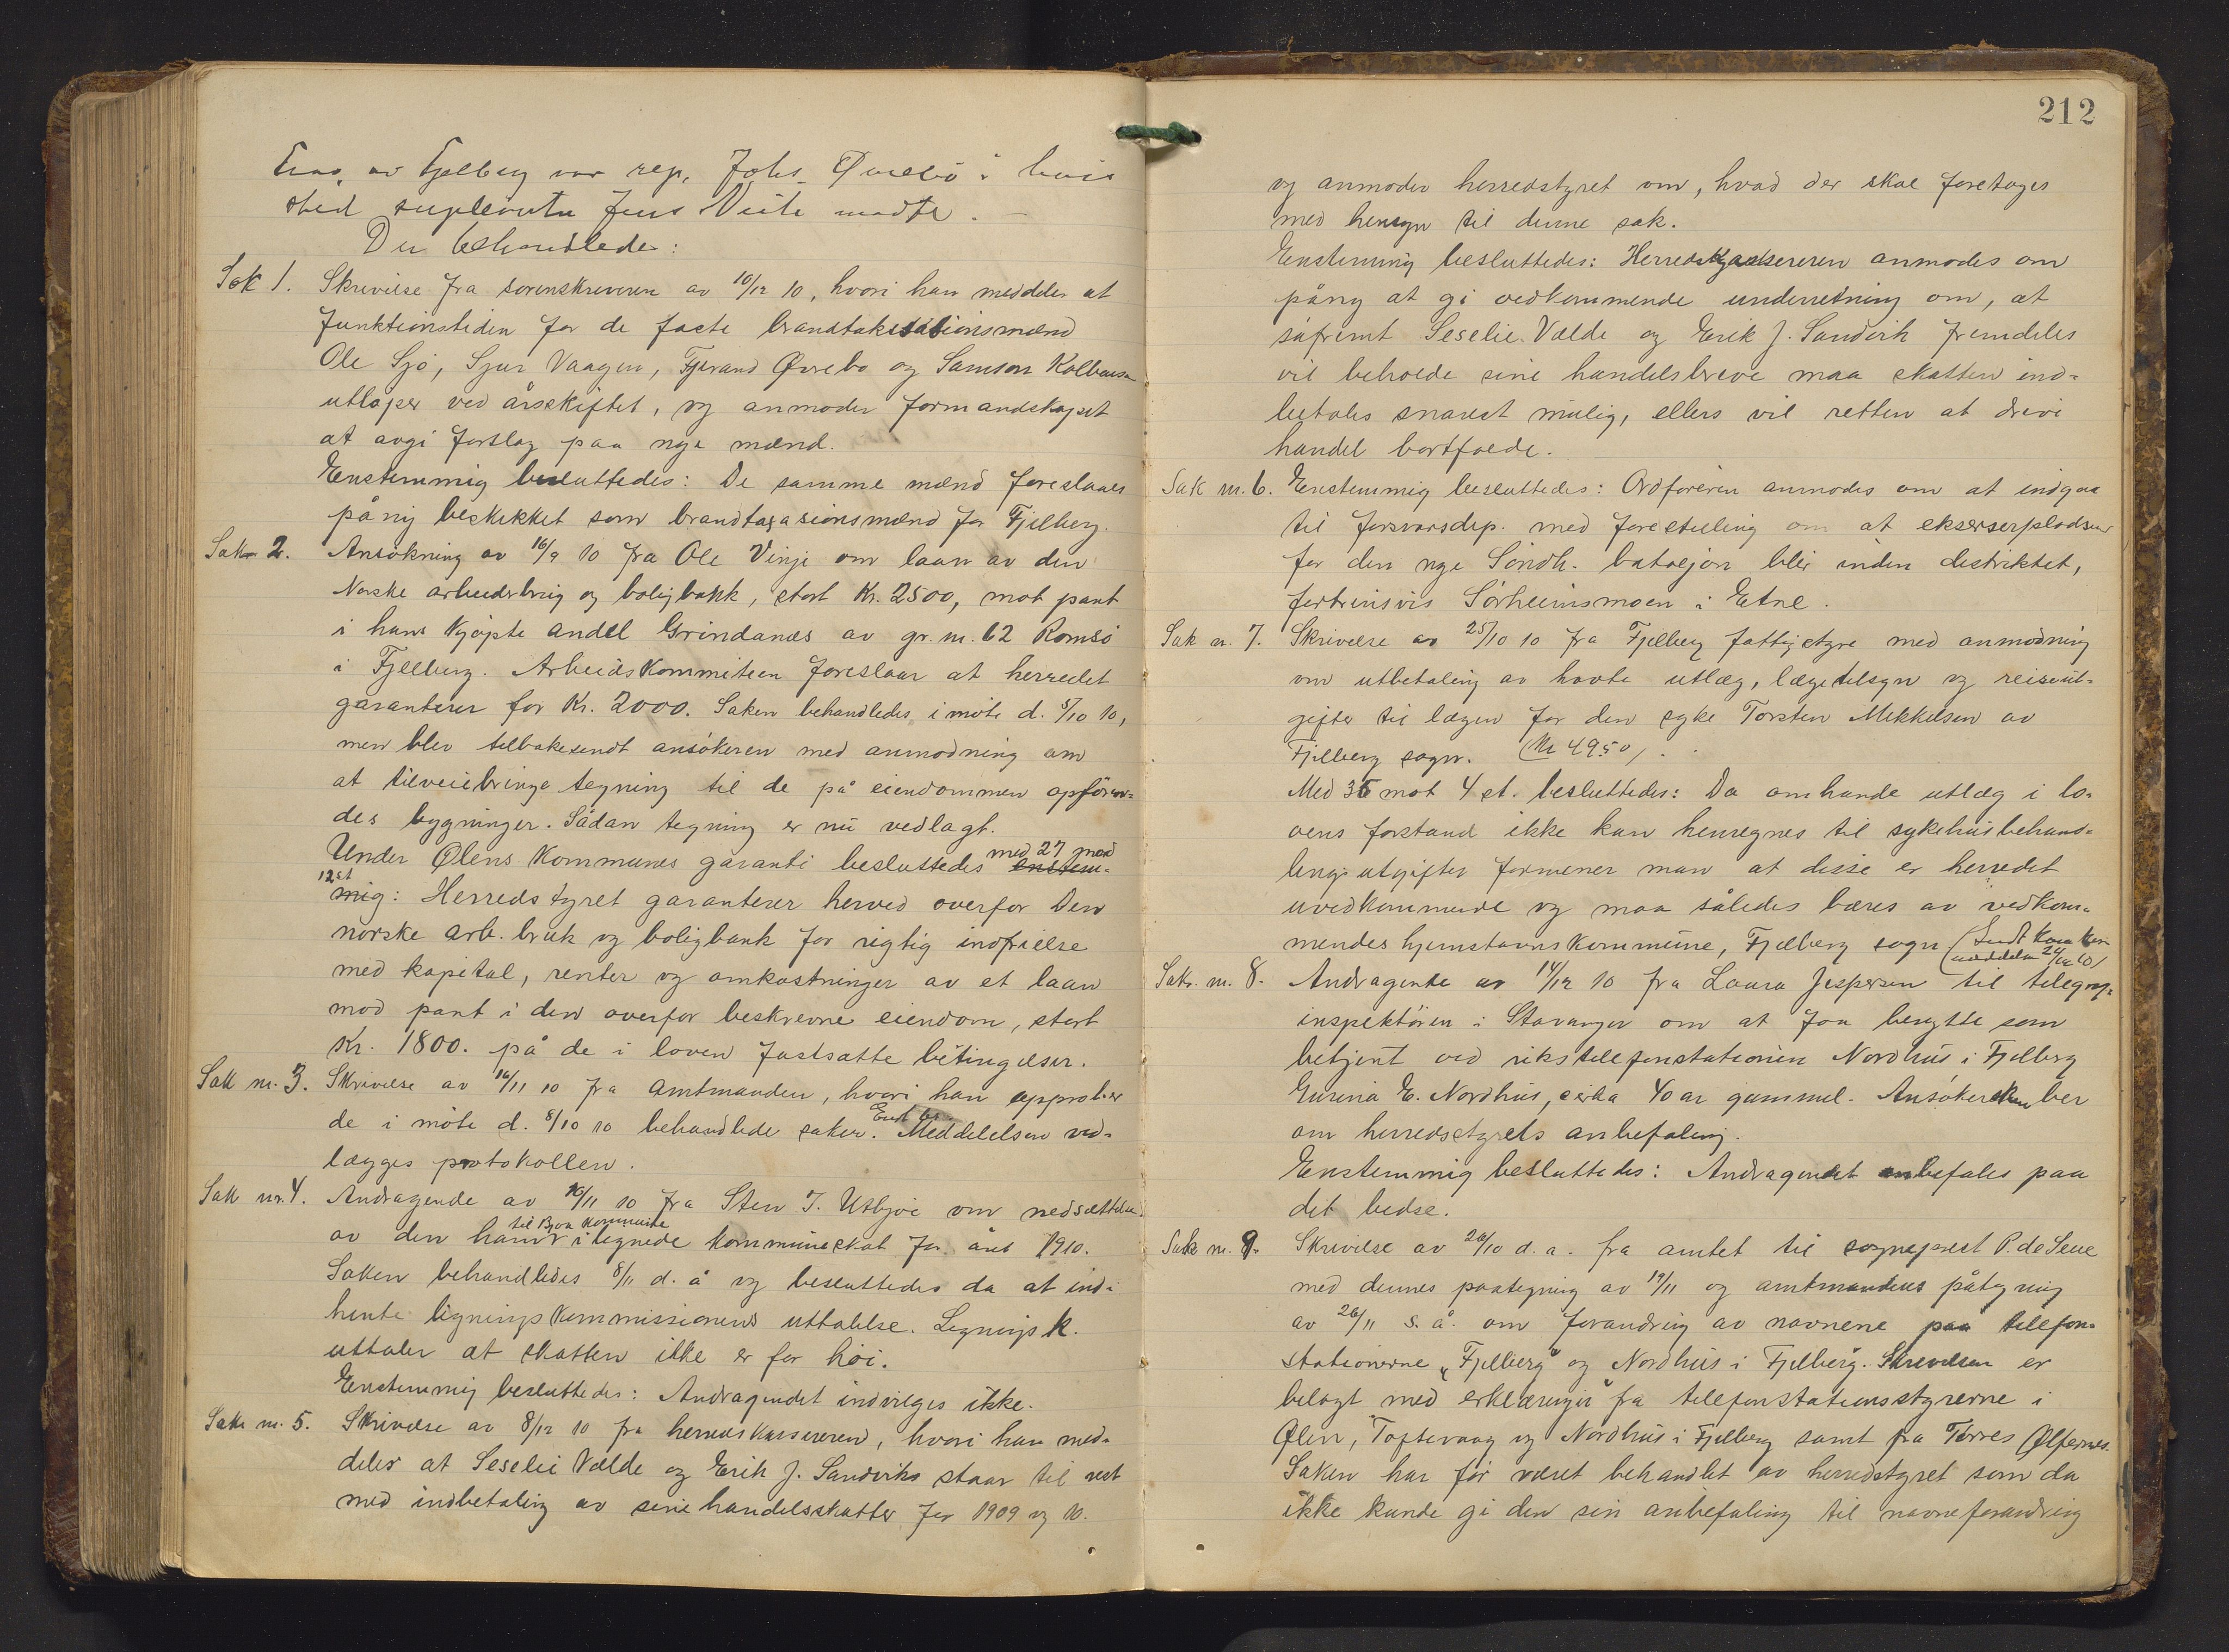 av Fjelberg var rep. Johs. Øvrebö i hvis
sted supleanten Jens Veite mödte.
Der behandledes:
Sak 1. Skrivelse fra sorenskriveren av 10/12 10, hvori han meddeler at
funktionstiden for de faste brandtakstationsmænd
Ole Sjo, Sjur Vaagen, Tjerand Øvrebo og Samson Kolbensen
utlöper ved årsskiftet, og anmoder formandskapet
at avgi forslag paa nye mænd.
Enstemmig besluttedes: De samme mænd foreslaaes
påny beskikket som brandtaxasionsmænd for Fjelberg.
Sak 2. Ansökning av 16/9 10 fra Ole Vinje om laan av den
Norske arbeiderbrug og boligbank, stort Kr. 2500, mot pant
i hans kjöpte andel Grindanæs av gr. nr. 62 Romsö
i Fjelberg. Arbeidskommiteen foreslaar at herredet
garanterer for Kr. 2000. Saken behandledes i möte d. 8/10 10,
men blev tilbakesendt ansökeren med anmodning om
at tilveiebringe tegning til de på eiendommen opfören-
des bygninger. Sådan tegning er nu vedlagt.
Under Ølens Kommunes garanti besluttedes med 27 mod enstem-
12 st mig: Herredstyret garanterer herved overfor Den
norske arb. bruk og boligbank for rigtig indfrielse
med kapital, renter og omkostninger av et laan
mod pant i den overfor beskrevne eiendom, stort
Kr. 1800. på de i loven fastsatte betingelser.
Sak nr. 3. Skrivelse av 16/11 10 fra amtmanden, hvori han approber
de i möte d. 8/10 10 behandlede saker. Enst. bes. Meddelelsen ved-
lægges protokollen.
Sak nr. 4. Andragende av 10/11 10 fra Sten T. Utbjoe om nedsættelse
av den ham til Bjoa kommune ilegnede kommuneskat for året 1910.
Saken behandledes 8/11 d. å og besluttedes da at ind-
hente ligningskommissionens uttalelse. Legningsk.
uttaler at skatten ikke er for höi.
Enstemmig besluttedes: Andragendet indvilges ikke.
Sak nr. 5. Skrivelse av 8/12 10 fra herredskassereren, hvori han med-
deler at Seselie Vælde og Erik J. Sandviks staar til rest
med indbetaling av sine handelsskatter for 1909 og 10.
212
og anmoder herredstyret om, hvad der skal foretages
med hensyn til denne sak.
Enstemmig besluttedes: Herredskassereren anmodes om
påny at gi vedkommende underretning om, at
såfremt Seselie Vælde og Erik J. Sandvik fremdeles
vil beholde sine handelsbreve maa skatten ind-
betales snarest mulig, ellers vil retten at drive
handel bortfalde.
Sak nr. 6. Enstemmig besluttedes: Ordföreren anmodes om at indgaa
til forsvarsdep. med forestilling om at ekserserpladsen
for den nye Söndh. bataljon blir inden distriktet,
fortrinsvis Sörheimsmoen i Etne.
Sak n. 7. Skrivelse av 25/10 10 fra Fjelberg fattigstyre med anmodning
om utbetaling av havte utlæg, lægetilsyn og reiseut-
gifter til lægen for den syke Torsten Mikkelsen av
Fjelberg sogn. (Kr 49.50).
Med 35 mot 4 st. besluttedes: Da omhande utlæg i lo-
vens forstand ikke kan henregnes til sykehusbehand-
lingsutgifter formener man at disse er herredet
uvedkommende og maa således bæres av vedkom-
mendes hjemstavnskommune, Fjelberg sogn
Sak. nr. 8. Andragende av 14/12 10 fra Laura Jespersen til telegraf-
inspektören i Stavanger om at faa benytte som
betjent ved rikstelefonstationen Nordhus i Fjelberg
Gurina E. Nordhus, cirka 40 ar gammel. Ansökersken ber
om herredsstyrets anbefaling.
Enstemmig besluttedes: Andragendet anbefales paa
det bedse.
Sak nr. 9. Skrivelse av 20/10 d. a. fra amtet til sogneprest P. de Seue
med dennes paategning av 19/11 og amtmandens påtegning
av 26/11 s. å. om forandring av navnene paa telefon-
stationerne "Fjelberg" og Nordhus i Fjelberg. Skrivelsen er
belagt med erklæringer fra telefonstationsstyrerne i
Ølen, Toftevaag og Nordhus i Fjelberg samt fra Torres Ølfernes.
Saken har för været behandlet av herredstyret som da
ikke kunde gi den sin anbefaling til navneforandring